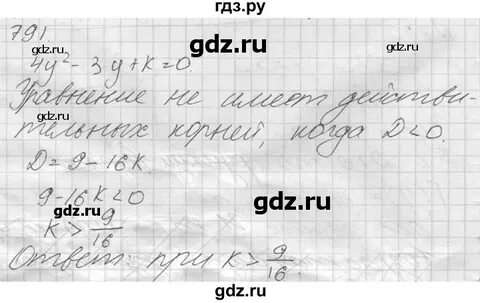 гдз.ру
791
gdz.ru
gdz.ru
4y² - 3y + k = 0
Уравнение не имеет действи-
тельных корней, когда D < 0.
gdz.ru
D = 9 - 16k.
9 - 16k < 0
gdz.ru
gdz.ru
k > 9/16
Ответ: при k > 9/16.
gdz.ru
gdz.ru